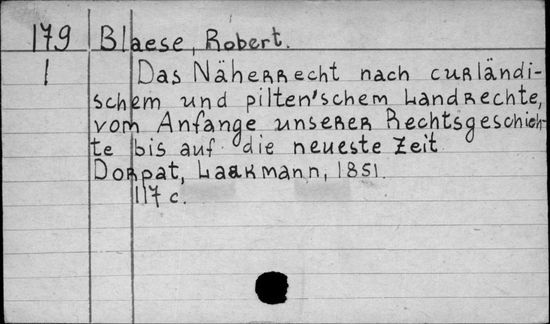 179 Blaese, Robert.
1 Das Näherrecht nach curländi-
schem und pilten'schem Landrechte,
vom Anfange unserer Rechtsgeschich-
te bis auf die neueste Zeit
Dorpat, Laakmann, 1851.
117 c.